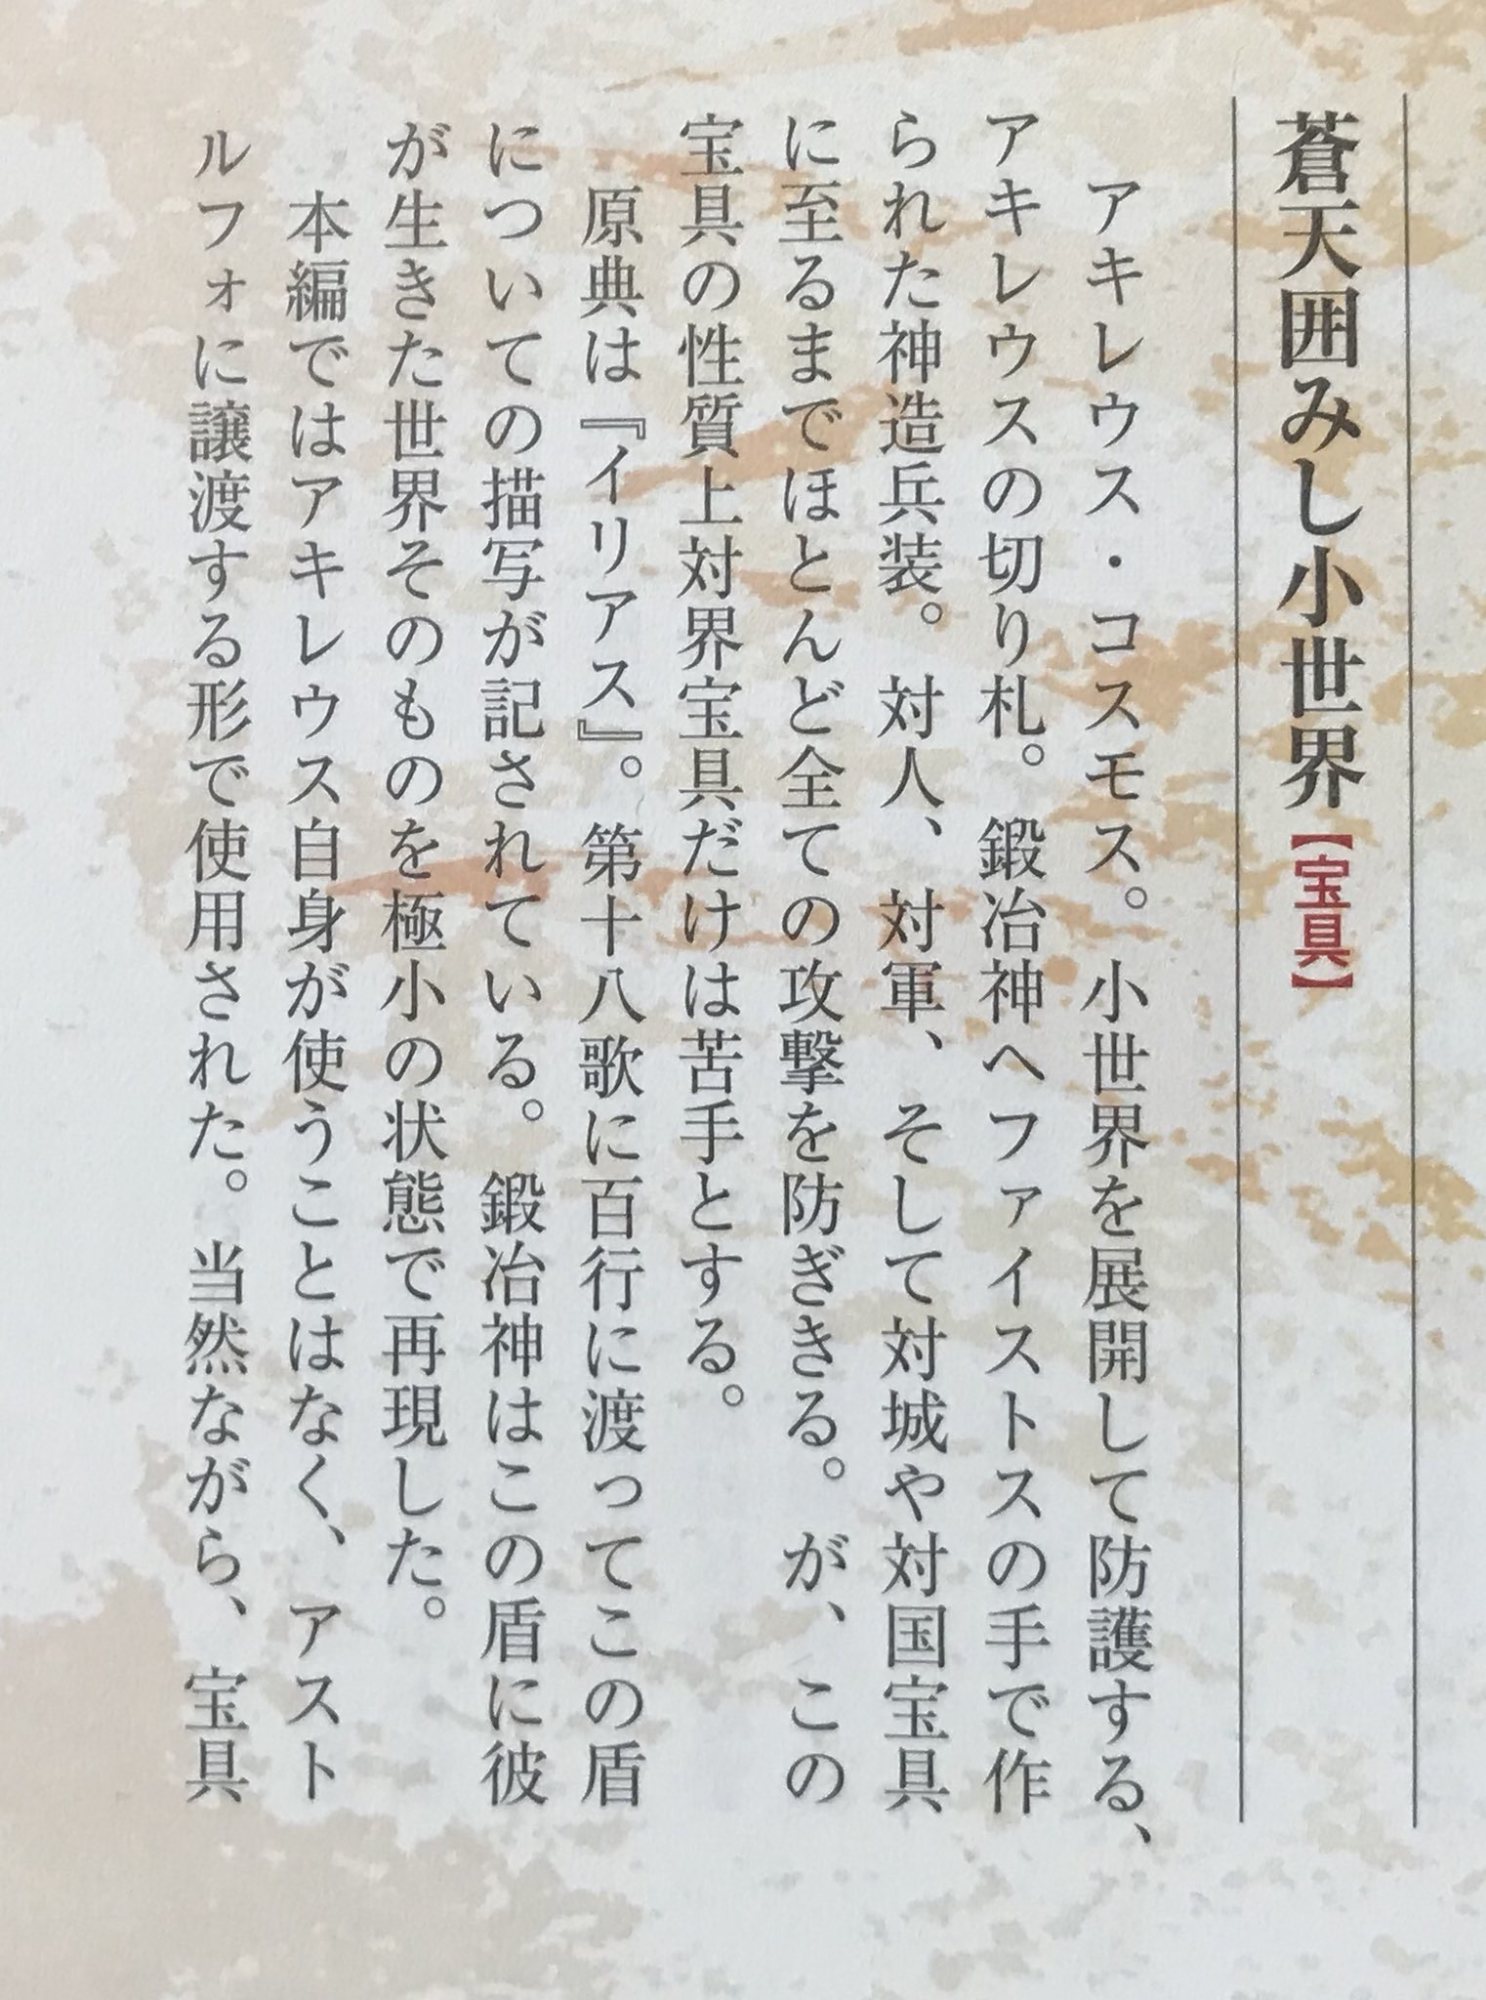 蒼天囲みし小世界【宝具】
アキレウス・コスモス。小世界を展開して防護する、
アキレウスの切り札。鍛冶神ヘファイストスの手で作
られた神造兵装。対人、対軍、そして対城や対国宝具
に至るまでほとんど全ての攻撃を防ぎきる。が、この
宝具の性質上対界宝具だけは苦手とする。
原典は『イリアス』。第十八歌に百行に渡ってこの盾
についての描写が記されている。鍛冶神はこの盾に彼
が生きた世界そのものを極小の状態で再現した。
本編ではアキレウス自身が使うことはなく、アスト
ルフォに譲渡する形で使用された。当然ながら、宝具